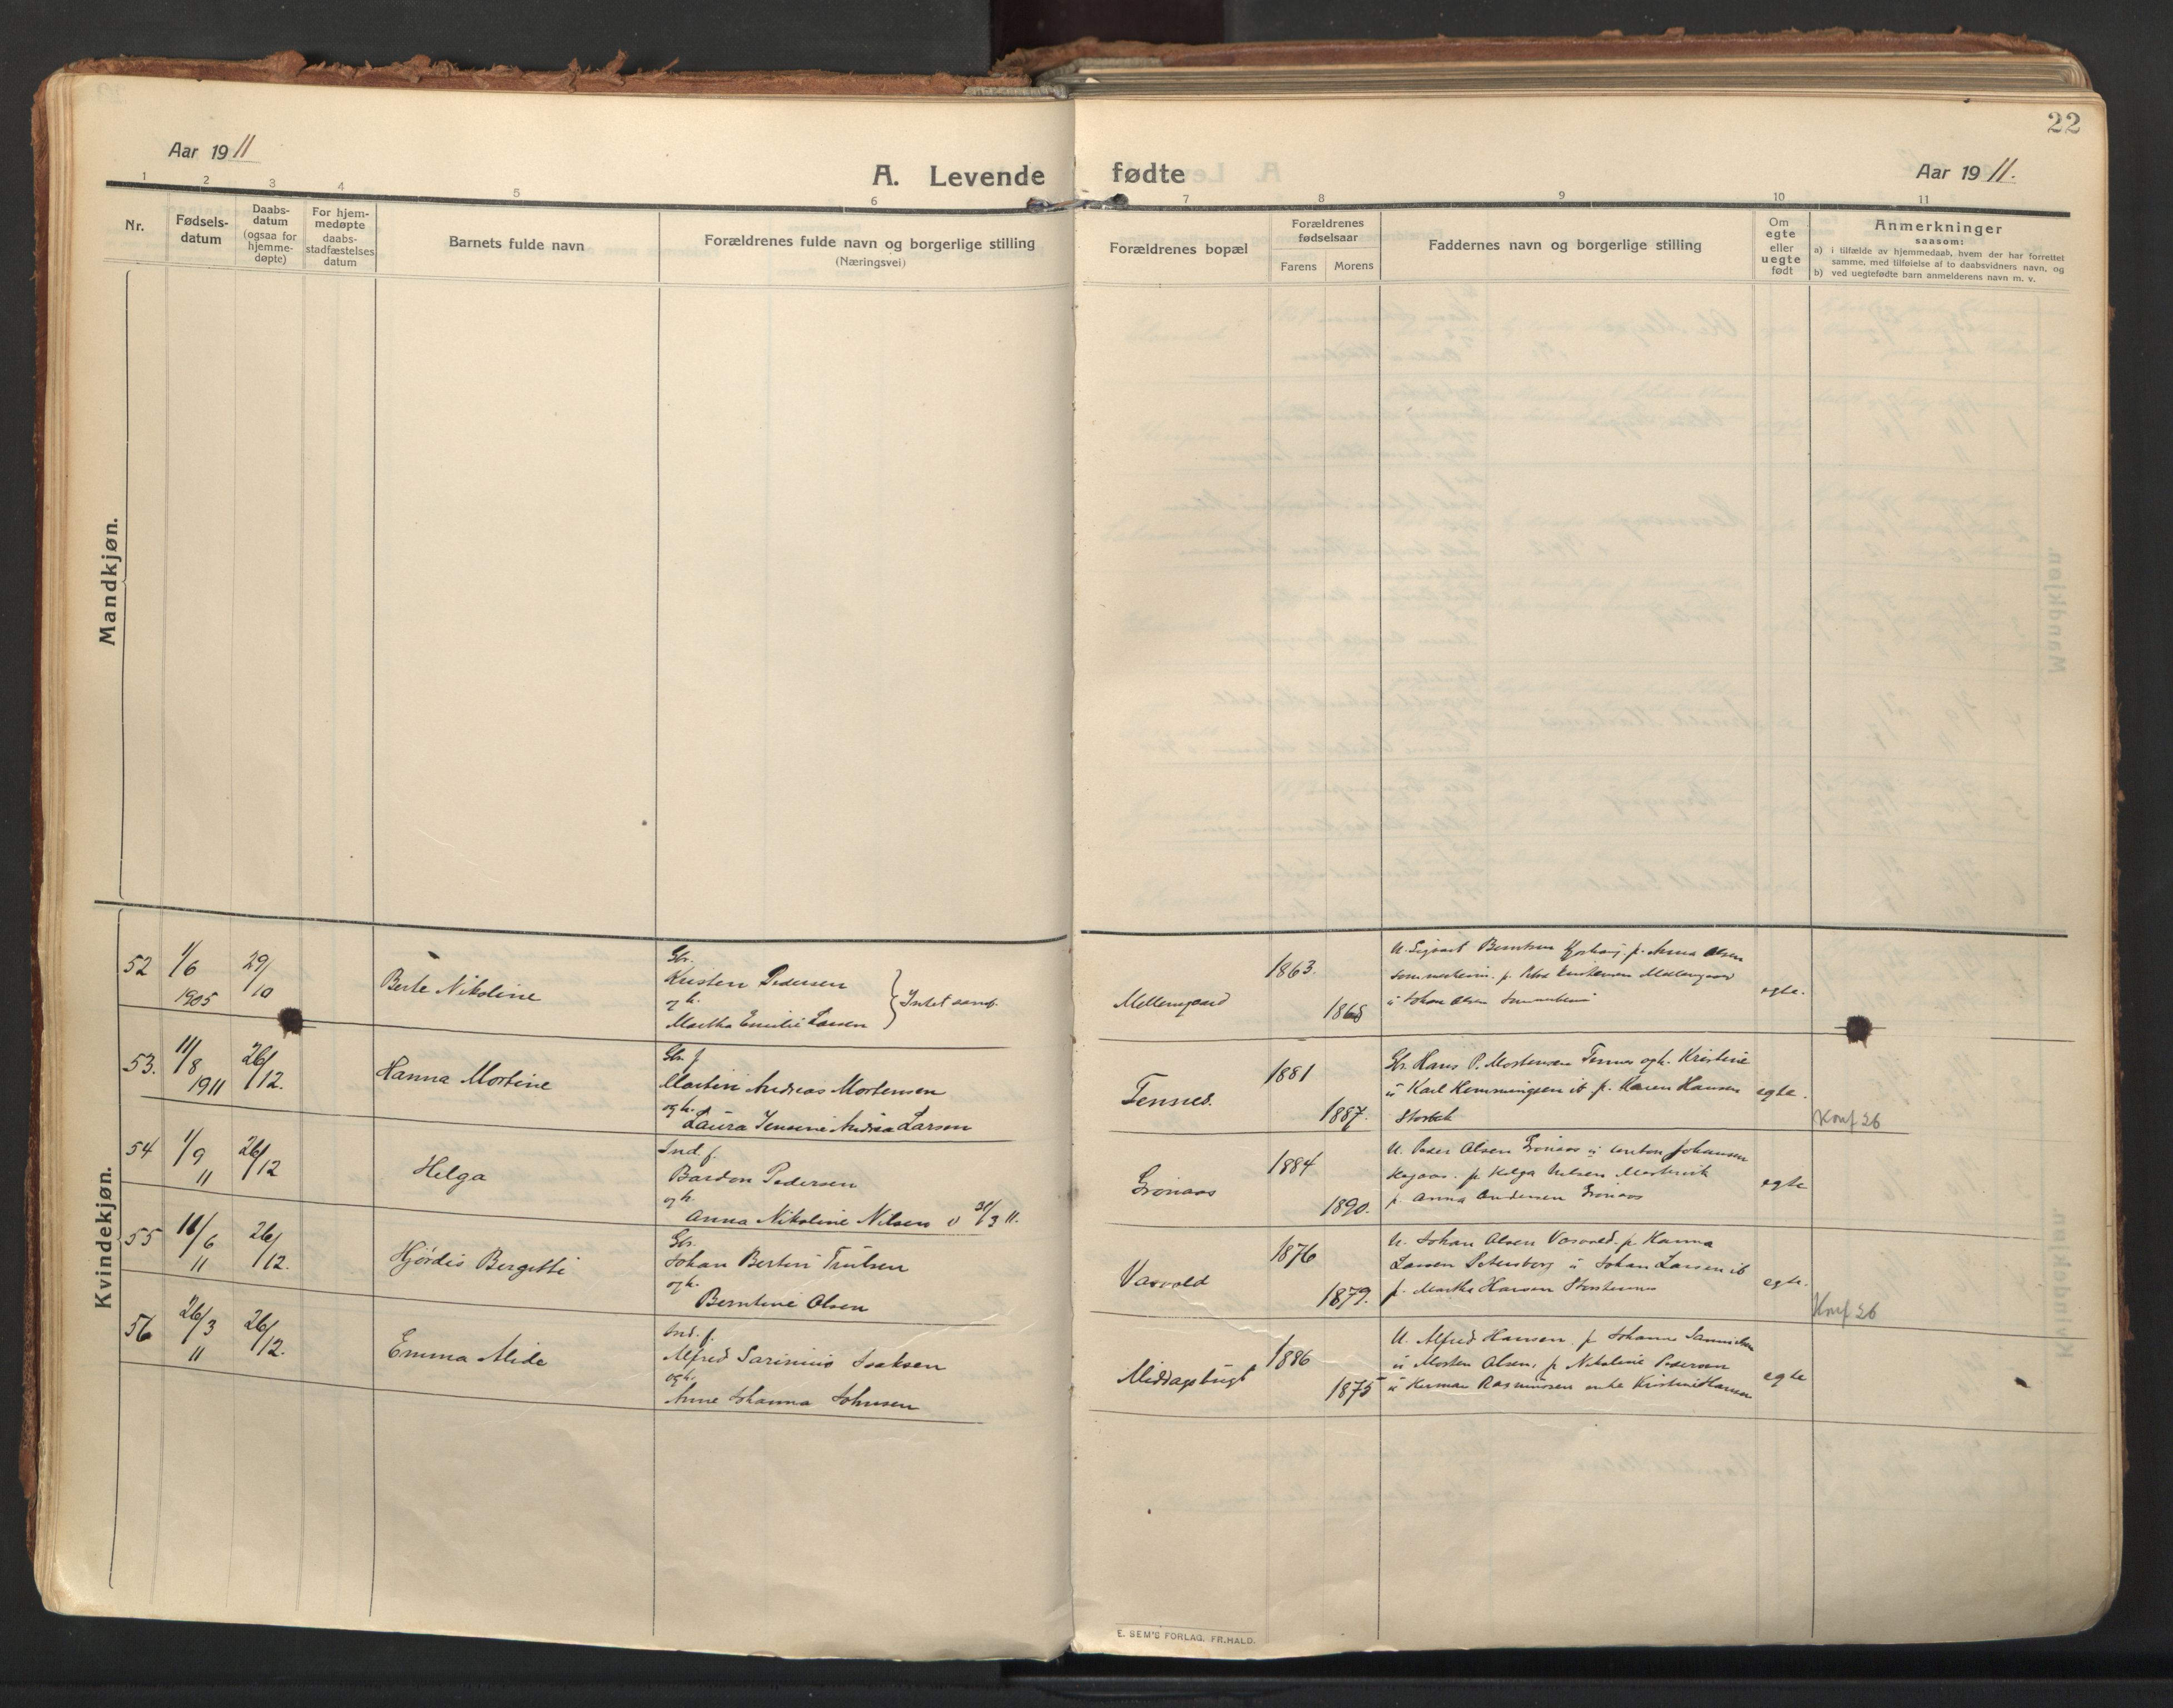 22
Aar 1911
A. Levende fødte
Aar 1911.
1 2 3 4 5 6 7 8 9 10 11
Nr.
Fødsels-
datum
Daabs-
datum
(ogsaa for
hjemme-
døpte)
For hjem-
medøpte
daabs-
stadfæstelses
datum
Barnets fulde navn
Forældrenes fulde navn og borgerlige stilling
(Næringsvei)
Forældrenes bopæl
Forældrenes
fødselsaar
Farens Morens
Faddernes navn og borgerlige stilling
Om
egte
eller
uegte
født
Anmerkninger
saasom:
a) i tilfælde av hjemmedaab, hvem der har forrettet
samme, med tilføielse af to daabsvidners navn, og
b) ved uegtefødte barn anmelderens navn m. v.
Mandkjøn.
Kvindekjøn.
52 1/6 1905 29/10
Berte Nikoline
Gbr.
Kristen Pedersen
og h.
Martha Emilie Larsen
Mellemgaard
1863.
1868
U. Sigvart Berntsen p. Anna Olsen
Sommerheim. p. Mellemgaard
u Johan Olsen Sommerheim
egte.
53. 11/8 1911 26/12.
Hanna Mortine
Gbr. f
Martin Andreas Mortensen
og h.
Laura Jensine Andrea Larsen
Tennes.
1881
1887.
Gbr. Hans P. Mortensen Tennes og h. Kristine
u Karl Hemmingsen ib p. Karen Hansen
egte.
Konf 26
54 1/9 11 26/12
Helga
Ind. f.
Bardon Pedersen
og h.
Anna Nikoline Nilsen v 31/3 11.
Grønaas
1884
1890.
U. Peder Olsen Grønaas u Anton Johansen
p Helga Nilsen
p. Anna Andersen Grønaas
egte
55 16/6 11 26/12.
Hjørdis Bergitte
Gbr.
Johan Bertin Trulsen
og h.
Berntine Olsen
Vasvold
1876
1879.
U. Johan Olsen Vasvold. p Hanna
Larsen Petersborg u Johan Larsen ib
p. Martha Hansen Storstennes
egte.
Konf 26
56 26/3 11 26/12.
Emma Alide
Ind. f.
Alfred Sarinius Isaksen
og h.
Anne Johanna Johnsen
Middagsbugt
1886
1875
U. Alfred Hansen. p Johanne Samuelsen
u Morten Olsen, p Nikoline Pedersen
u Herman Rasmussen enke Kristine Hansen
egte
E. SEM'S FORLAG, FR.HALD.